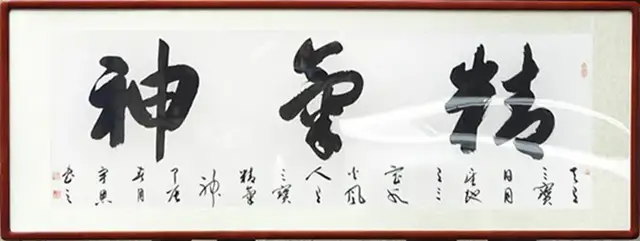 精氣神
三寶
日月
星地
之三
寶水
火風
人之
三寶
精氣
神
五月
書之